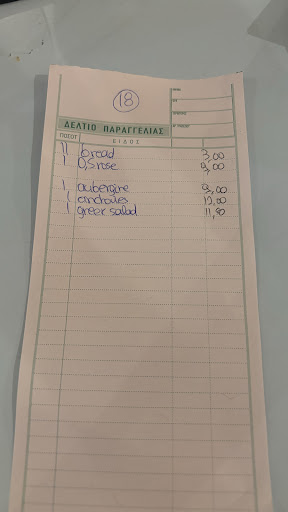 18
ΔΕΛΤΙΟ ΠΑΡΑΓΓΕΛΙΑΣ
ΠΟΣΟΤ ΕΙΔΟΣ
11 bread 3,00
1 0,5 rose 9,00
1 aubergine 9,00
1 anchovies 12,00
1 greek salad 11,90